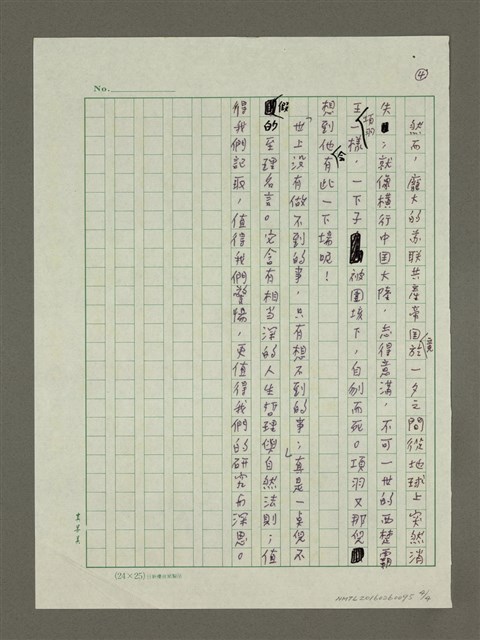 ④
No.
然而，龐大的蘇联共產帝国竟於一夕之間從地球上突然消
失；就像橫行中国大陸，志得意滿，不可一世的西楚霸
王項羽樣，一下子被圍垓下，自刎而死。項羽又那兒
想到他會有此一下場呢！
「世上没有做不到的事，只有想不到的事；」真是一点兒不
假的至理名言。它含有相当深的人生哲理與自然法則；值
得我們記取，值得我們警惕，更值得我們的研究与深思。
(24×25)
NMTL20160260095 4/4